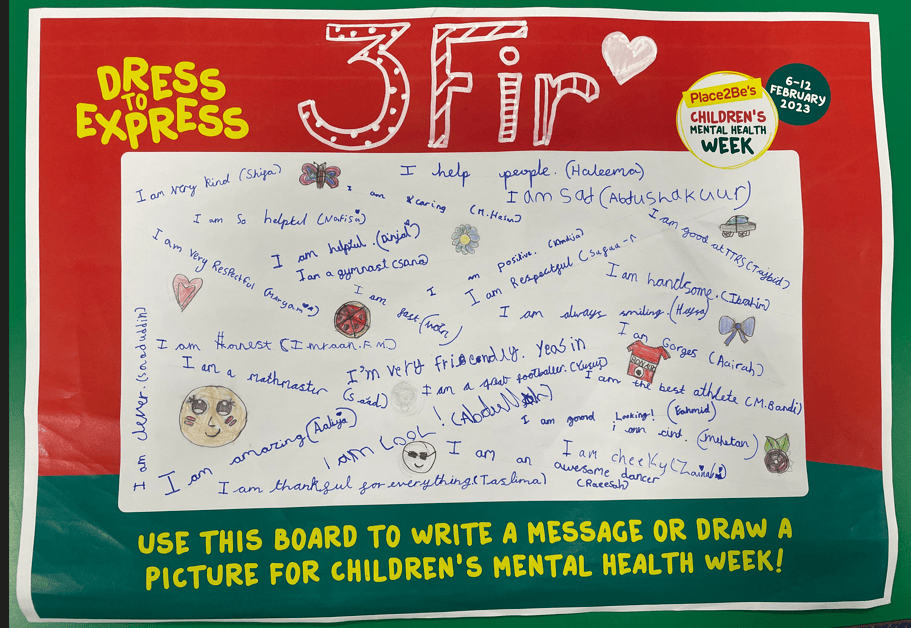 3Fir
DRESS
TO
EXPRESS
Place2Be's
CHILDREN'S
MENTAL HEALTH
WEEK
6-12
FEBRUARY
2023
I am very kind (Shifa)
I help people. (Haleema)
I am caring
I am sad (Abdushakuur)
I am so helpful (Nafisa)
I am helpful.
I am a gymnast (Sana)
I am very Respectful (Maryam)
I am positive.
I am good at TTRS (Tajbid)
I am Respectful
I am handsome. (Ibrahim)
I am fast.
I am always smiling.
I am Honest (Imraan.F.M)
I am Gorges (Aairah)
I am clever. (Saaduddin)
I am a mathmaster
(Saad)
I'm very friecondly. Yeasin
I am a great footballer. (Yusuf)
I am the best athlete (M.Bandi)
I am amazing (Aaliya)
I am COOL! (Abdullah)
I am goond Looking! (Fahmid)
i am cind. (Mehetan)
I am cheeky (Zainab)
I am an
awesome dancer
(Raeesah)
I am thankful for everything (Taslima)
USE THIS BOARD TO WRITE A MESSAGE OR DRAW A
PICTURE FOR CHILDREN'S MENTAL HEALTH WEEK!